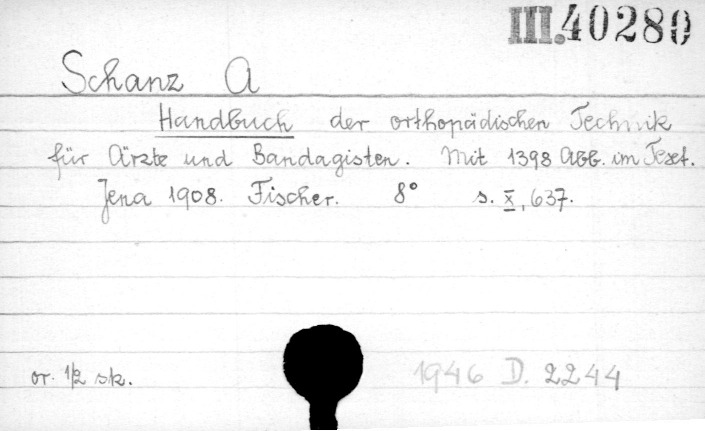 III.40280
Schanz A
Handbuch der orthopädischen Technik
für Ärzte und Bandagisten. Mit 1398 Abb. im Text.
Jena 1908. Fischer. 8° s. X, 637.
or. 1/2 sk.
1946 D. 2244